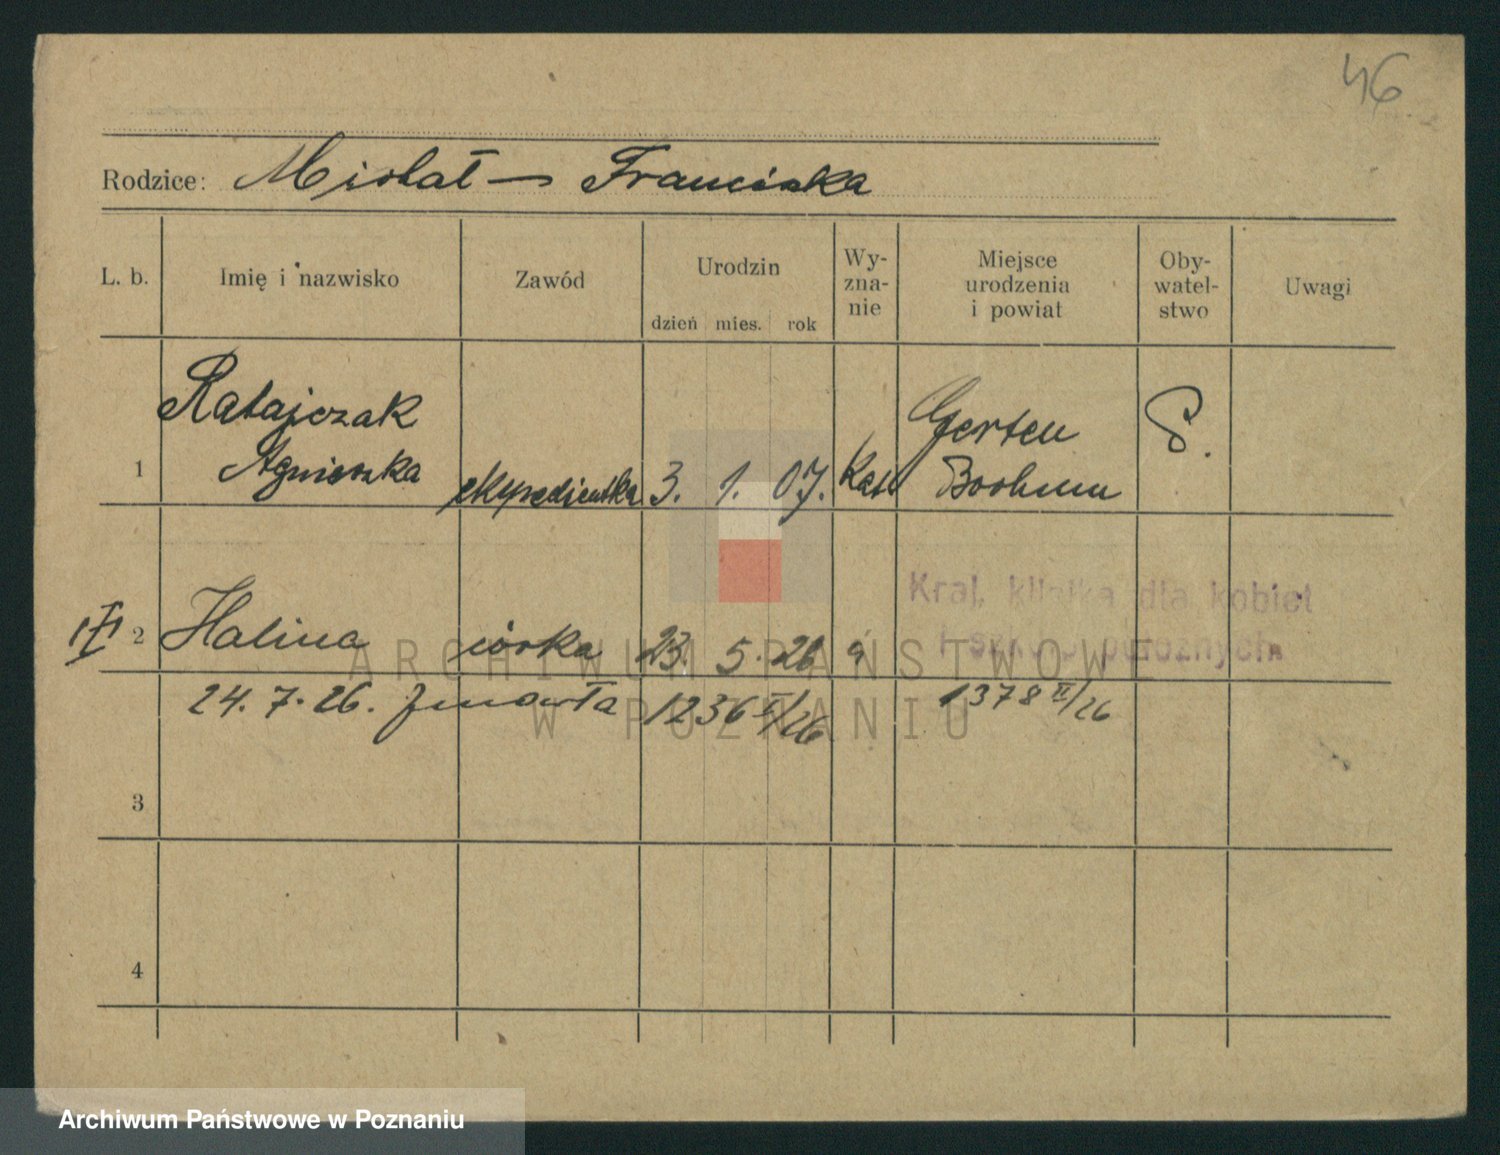 46
Rodzice: Michał – Franciszka
L. b. Imię i nazwisko Zawód Urodzin Wy-zna-nie Miejsce urodzenia i powiat Oby-watel-stwo Uwagi
dzień mies. rok
Ratajczak Gerten P.
1 Agnieszka ekspedientka 3. 1. 07. kat Bochum
Kraj. klinika dla kobiet
2 Halina córka 23. 5. 26
i szkoła położnych
24. 7. 26. zmarła 1236 1378 II/26
3
4
ARCHIWUM PAŃSTWOWE
W POZNANIU
Archiwum Państwowe w Poznaniu